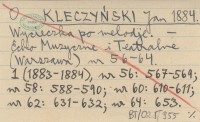 O KLECZYŃSKI Jan 1884.
Wycieczka po melodje. —
Echo Muzyczne i Teatralne
(Warszawa) nr 56-64.
1 (1883-1884), nr 56: 567-569;
nr 58: 588-590; nr 60: 610-611;
nr 62: 631-632; nr 64: 653.